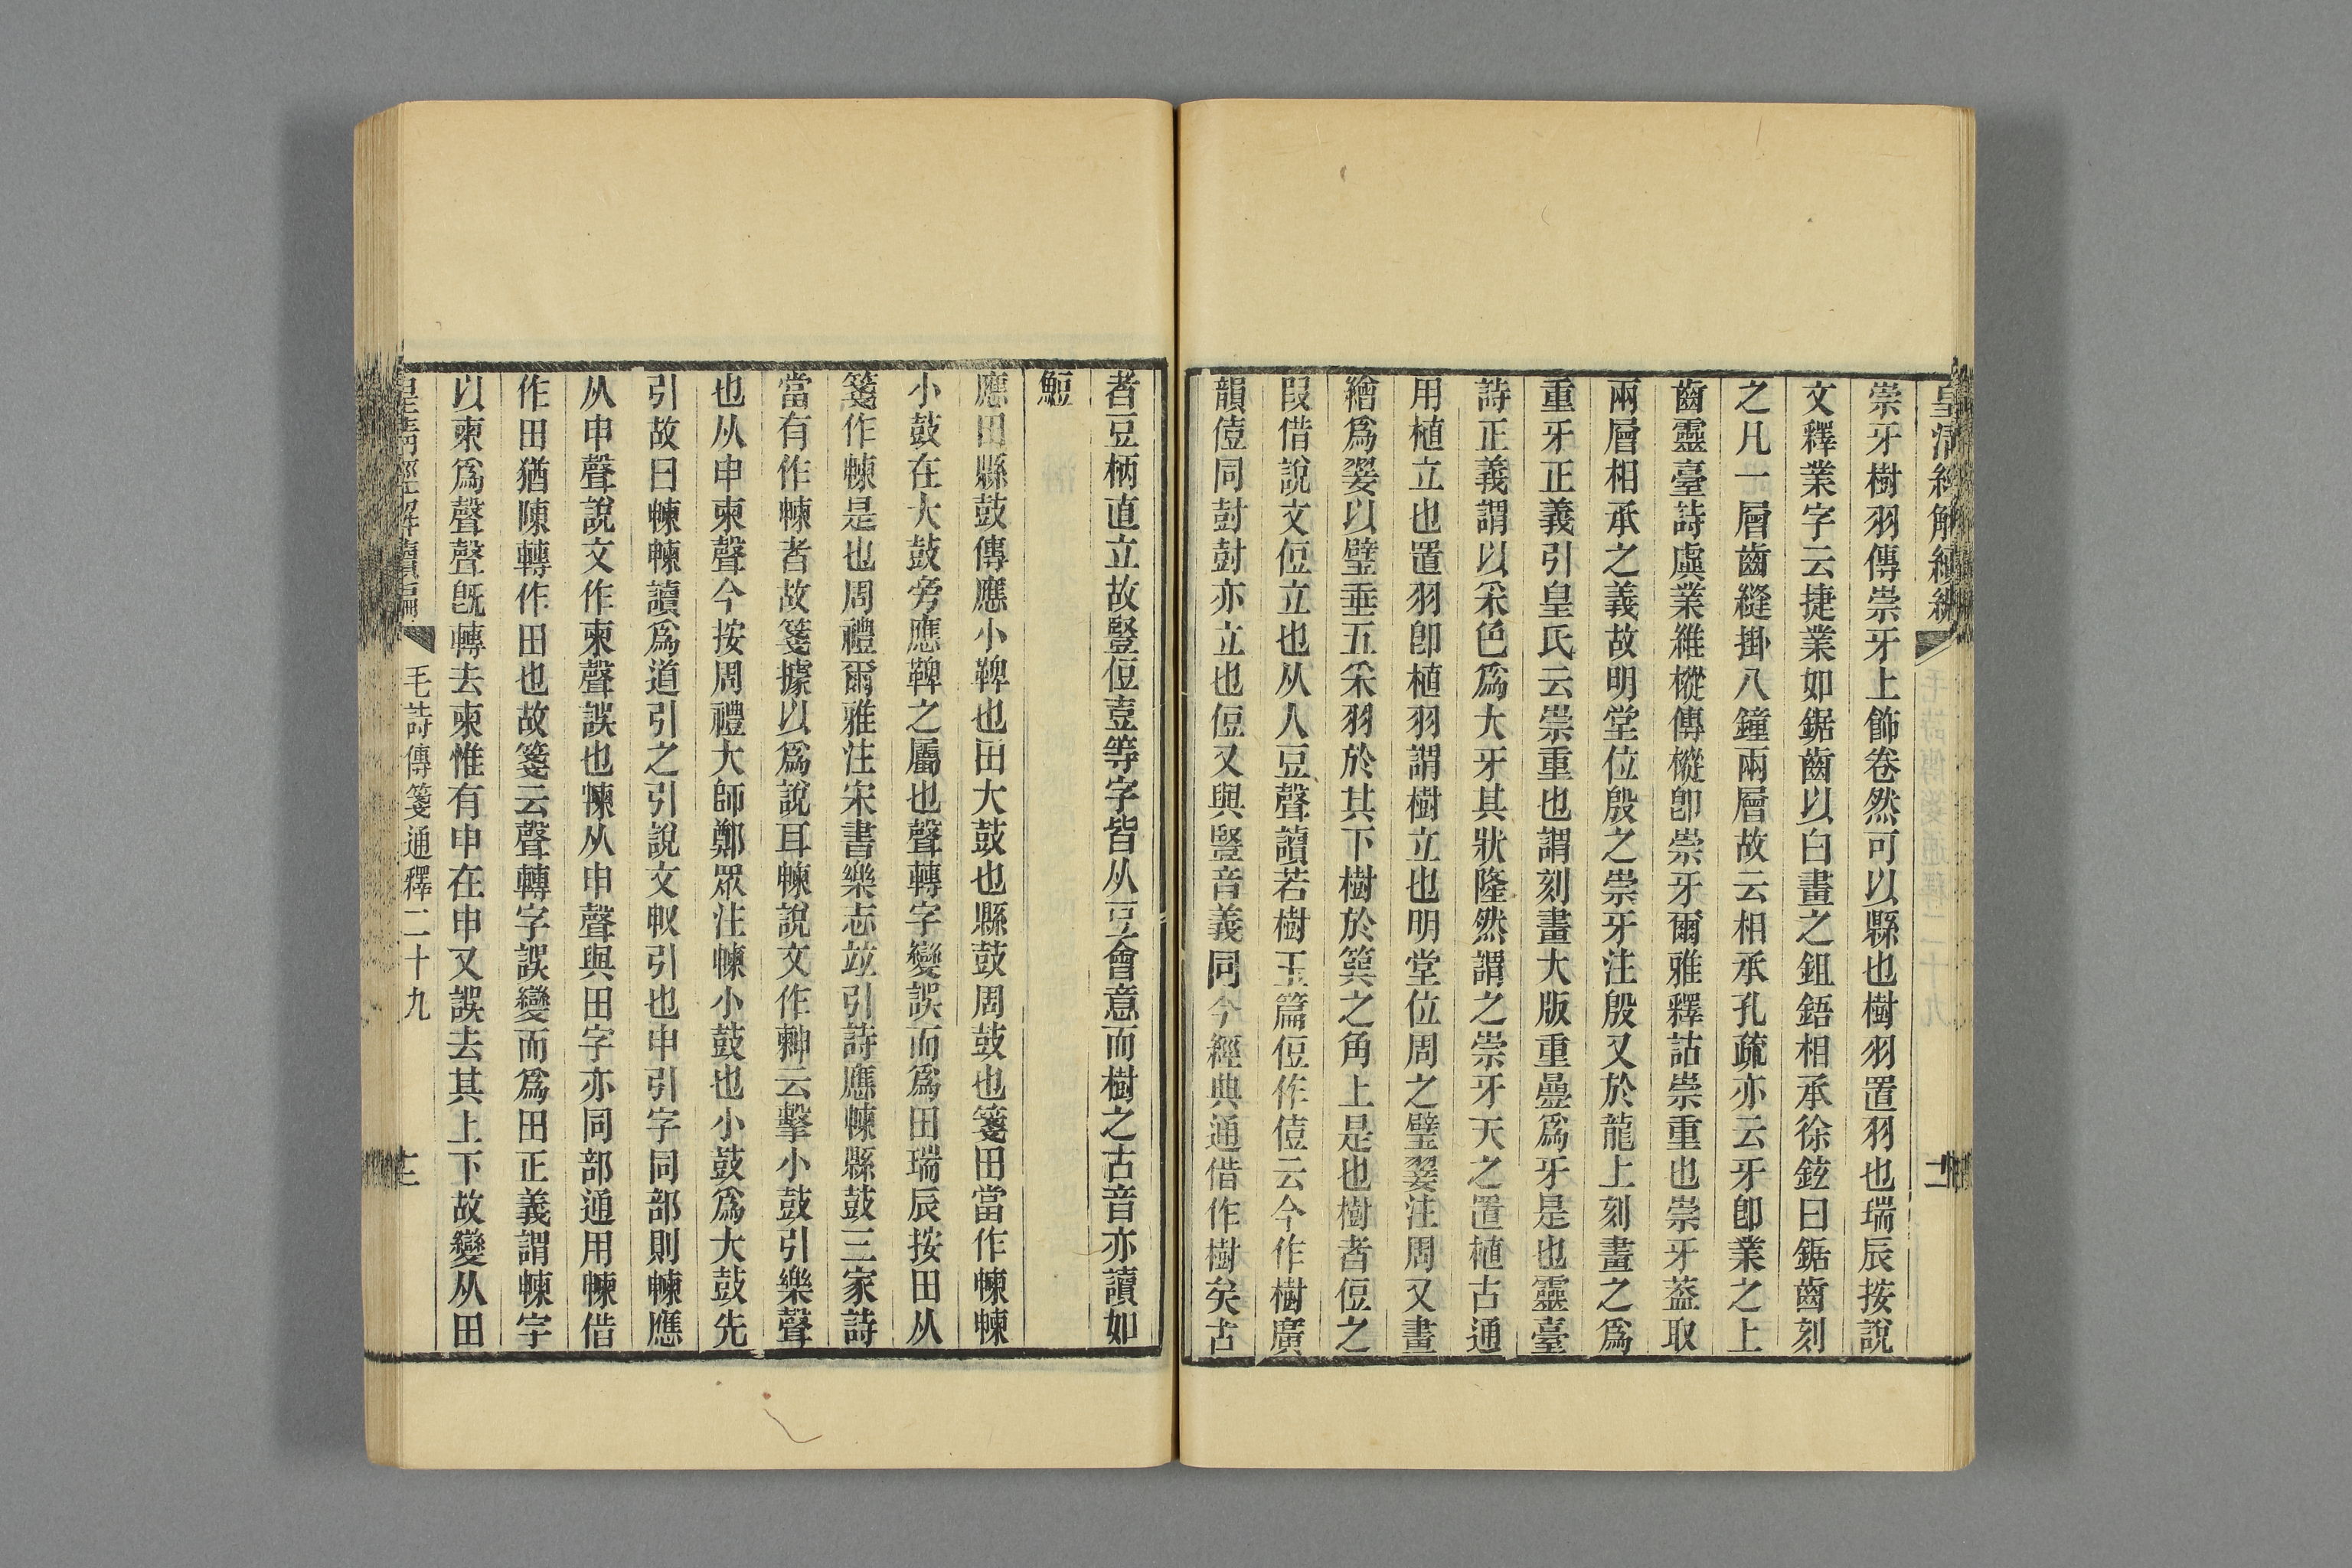 皇清經解續編
崇牙樹羽傳崇牙上飾卷然可以縣也樹羽置羽也瑞辰按說
文釋業字云捷業如鋸齒以白畫之鉏鋙相承徐鉉曰鋸齒刻
之凡一層齒縫掛八鐘兩層故云相承孔疏亦云牙卽業之上
齒靈臺詩虡業維樅傳樅卽崇牙爾雅釋詁崇重也崇牙葢取
兩層相承之義故明堂位殷之崇牙注殷又於龍上刻畫之爲
重牙正義引皇氏云崇重也謂刻畫大版重疊爲牙是也靈臺
詩正義謂以采色爲大牙其狀隆然謂之崇牙天之置植古通
用植立也置羽卽植羽謂樹立也明堂位周之璧翣注周又畫
繒爲翣以璧垂五采羽於其下樹於簨之角上是也樹者侸之
叚借說文侸立也从人豆聲讀若樹玉篇侸作偣云今作樹廣
韻偣同尌尌亦立也侸又與豎音義同今經典通借作樹矣古
者豆柄直立故豎侸壴等字皆从豆會意而樹之古音亦讀如
䱏
應田縣鼓傳應小鞞也田大鼓也縣鼓周鼓也箋田當作朄朄
小鼓在大鼓旁應鞞之屬也聲轉字變誤而爲田瑞辰按田从
箋作朄是也周禮爾雅注宋書樂志竝引詩應朄縣鼓三家詩
當有作朄者故箋據以爲說耳朄說文作𢑇云擊小鼓引樂聲
也从申柬聲今按周禮大師鄭眾注朄小鼓也小鼓爲大鼓先
引故曰朄朄讀爲道引之引說文㕞引也申引字同部則朄應
从申聲說文作柬聲誤也朄从申聲與田字亦同部通用朄借
作田猶陳轉作田也故箋云聲轉字誤變而爲田正義謂朄字
以柬爲聲聲旣轉去柬惟有申在申又誤去其上下故變从田
皇清經解續編 毛詩傳箋通釋二十九